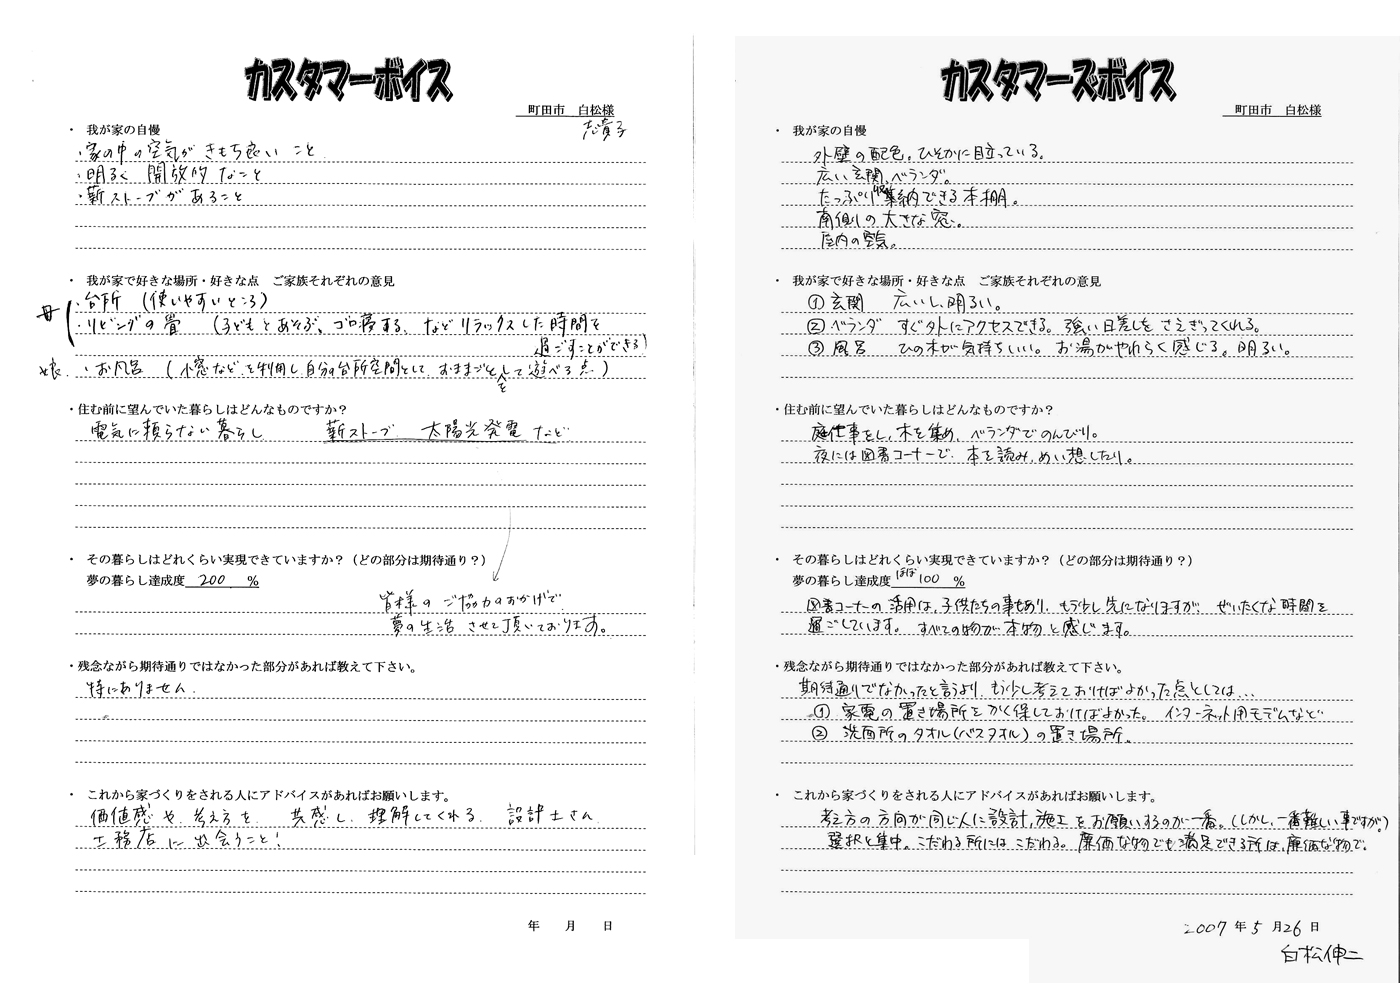 カスタマーボイス
町田市 白松様
志貴子
・ 我が家の自慢
・家の中の空気がきもち良いこと
・明るく 開放的なこと
・薪ストーブがあること
・ 我が家で好きな場所・好きな点 ご家族それぞれの意見
母
・台所 (使いやすいところ)
・リビングの畳 (子どもとあそぶ、ゴロ寝する、などリラックスした時間を
過ごすことができる)
娘
・お風呂 (小窓などを利用し自分の台所空間として、おままごとをして遊べる点)
・住む前に望んでいた暮らしはどんなものですか?
電気に頼らない暮らし 薪ストーブ 太陽光発電 など
・ その暮らしはどれくらい実現できていますか?(どの部分は期待通り?)
夢の暮らし達成度 200 %
皆様のご協力のおかげで
夢の生活させて頂いております。
・残念ながら期待通りではなかった部分があれば教えて下さい。
特にありません.
・ これから家づくりをされる人にアドバイスがあればお願いします。
価値感や、考えを、共感し、理解してくれる、設計士さん
工務店に出会うこと!
年 月 日
カスタマーズボイス
町田市 白松様
・ 我が家の自慢
外壁の配色。ひそかに目立っている。
広い玄関、ベランダ。
たっぷり収納できる本棚。
南側の大きな窓。
屋内の空気。
・ 我が家で好きな場所・好きな点 ご家族それぞれの意見
① 玄関 広いし、明るい。
② ベランダ すぐ外にアクセスできる。強い日差しをさえぎってくれる。
③ 風呂 ひの木が気持ちいい。お湯がやわらく感じる。明るい。
・住む前に望んでいた暮らしはどんなものですか?
庭仕事をし、木を集め、ベランダでのんびり。
夜には図書コーナーで、本を読み、めい想したり。
・ その暮らしはどれくらい実現できていますか?(どの部分は期待通り?)
夢の暮らし達成度 ほぼ100 %
図書コーナーの活用は、子供たちの事もあり、もう少し先になりますが、ぜいたくな時間を
過ごしています。すべての物が本物と感じます。
・残念ながら期待通りではなかった部分があれば教えて下さい。
期待通りでなかったと言うより、もう少し考えておけばよかった点としては...
① 家電の置き場所をかく保しておけばよかった。インターネット用モデムなど
② 洗面所のタオル(バスタオル)の置き場所。
・ これから家づくりをされる人にアドバイスがあればお願いします。
考え方の方向が同じ人に設計、施工をお願いするのが一番。(しかし、一番難しい事ですが)
選択と集中。こだわる所にはこだわる。廉価な物でも満足できる所は、廉価な物で。
2007 年 5 月 26 日
白松伸二